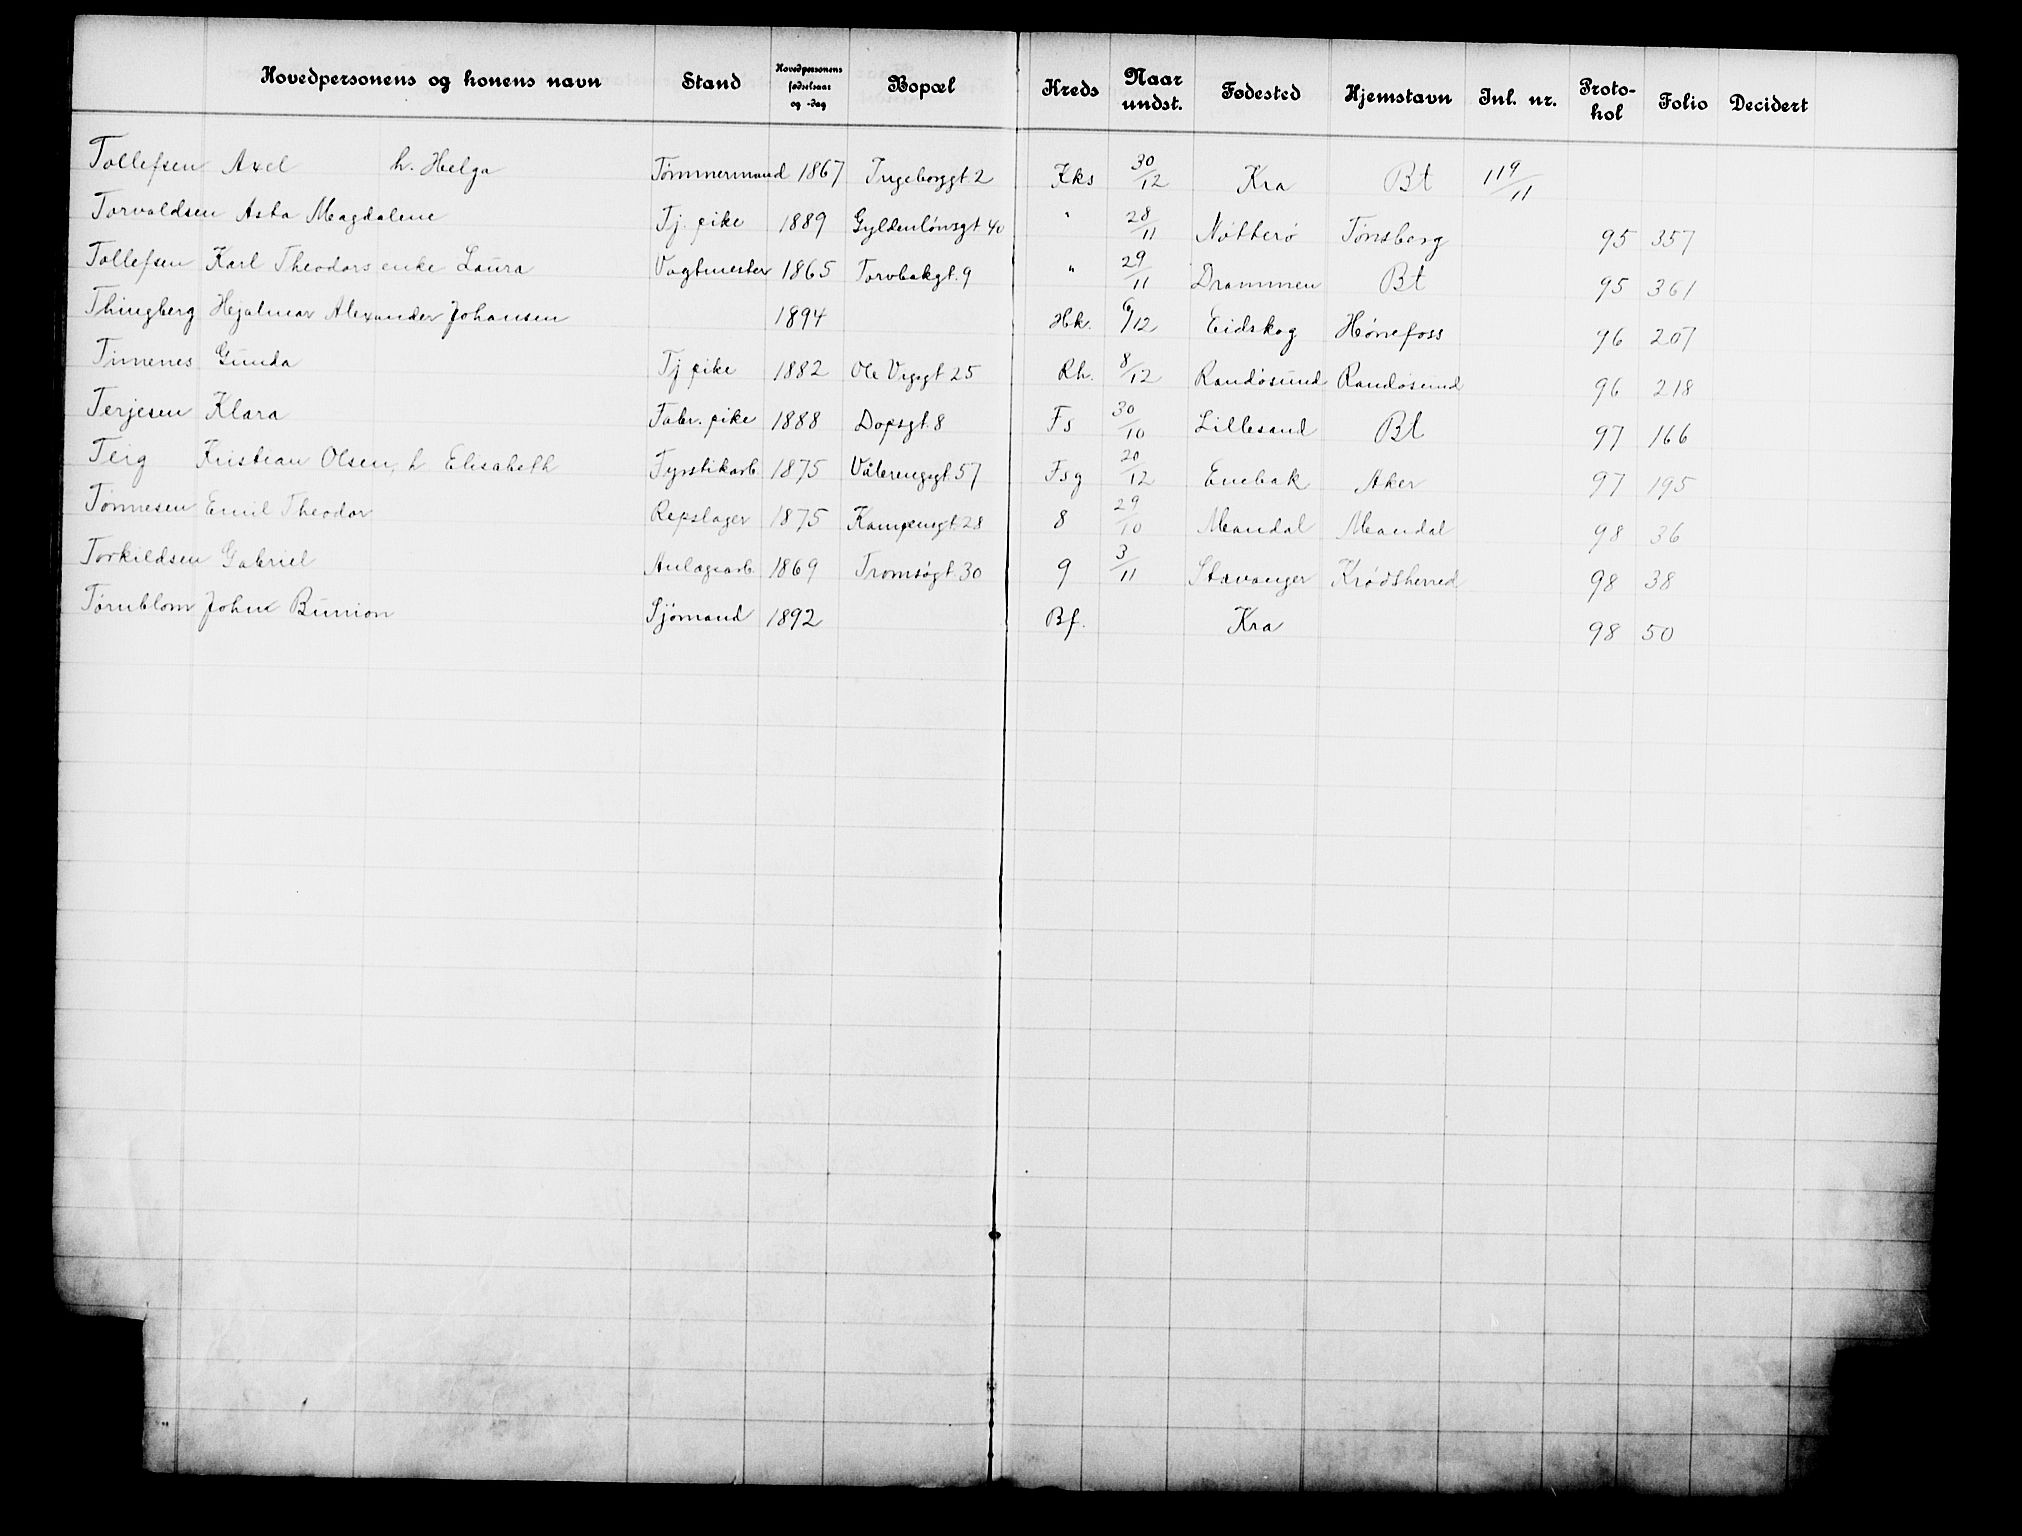 Hovedpersonens og konens navn Stand Hovedpersonens fødselsaar og -dag Bopæl Kreds Naar undst. Fødested Hjemstavn Jnl. nr. Protokol Folio Decidert
Tollefsen Axel h. Helga Tømmermand 1867 Ingeborggt. 2 Kks 30/12 Kra Bt 119/11
Torvaldsen Asta Magdalene Tj. pike 1889 Gyldenlønsgt 40 " 28/11 Nøtterø Tønsberg 95 357
Tollefsen Karl Theodors enke Laura Vagtmester 1865 Torvbakgt. 9 " 29/11 Drammen Bt 95 361
Thingberg Hjalmar Alexander Johansen 1894 Hk. 6/12 Eidskog Hønefoss 96 207
Timenes Gunda Tj pike 1882 Ole Vigsgt 25 Rh. 8/12 Randøsund Randøsund 96 218
Terjesen Klara Fabr. pike 1888 Dopsgt. 8 Fs 30/10 Lillesand Bt 97 166
Teig Kristian Olsen, h Elisabeth Fyrstikarb. 1875 Vålerenggt. 57 Fsg 20/12 Enebak Aker 97 195
Tønnesen Emil Theodor Repslager 1875 Kampengt. 28 8 29/10 Mandal Mandal 98 36
Torkildsen Gabriel Anlægsarb. 1869 Tromsøgt. 30 9 3/11 Stavanger Krødsherred 98 38
Tørnblom John Bunion Sjømand 1892 Bf. Kra 98 50